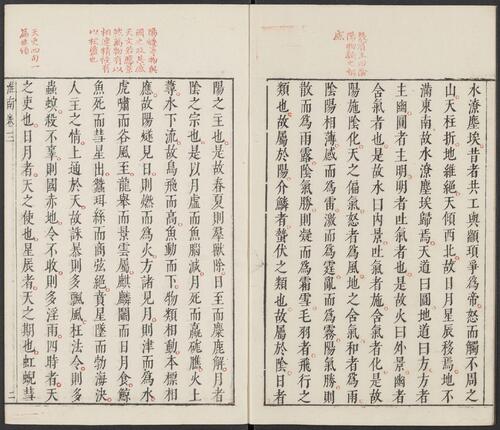 水潦塵埃昔者共工與顓頊爭為帝怒而觸不周之
山天柱折地維絕天傾西北故日月星辰移焉地不
滿東南故水潦塵埃歸焉天道曰圓地道曰方方者
主幽圓者主明明者吐氣者也是故火曰外景幽者
含氣者也是故水曰內景吐氣者施含氣者化是故
陽施陰化天之偏氣怒者為風地之含氣和者為雨
陰陽相薄感而為雷激而為霆亂而為霧陽氣勝則
散而為雨露陰氣勝則凝而為霜雪毛羽者飛行之
類也故屬於陽介鱗者蟄伏之類也故屬於陰日者
陽燧等物與
國之政其感
天文若應景
然萬物有以
相連精祲有
以相盪也
天吏四句一
陽之主也是故春夏則羣獸除日至而麋鹿解月者
陰之宗也是以月虛而魚腦減月死而蠃蛖膲火上
蕁水下流故鳥飛而高魚動而下物類相動本標相
應故陽燧見日則燃而為火方諸見月則津而為水
虎嘯而谷風至龍舉而景雲屬麒麟鬭而日月食鯨
魚死而彗星出蠶珥絲而商弦絕賁星墜而勃海決
人主之情上通於天故誅暴則多飄風枉法令則多
蟲螟殺不辜則國赤地令不收則多淫雨四時者天
之吏也日月者天之使也星辰者天之期也虹蜺彗
淮南卷三
三